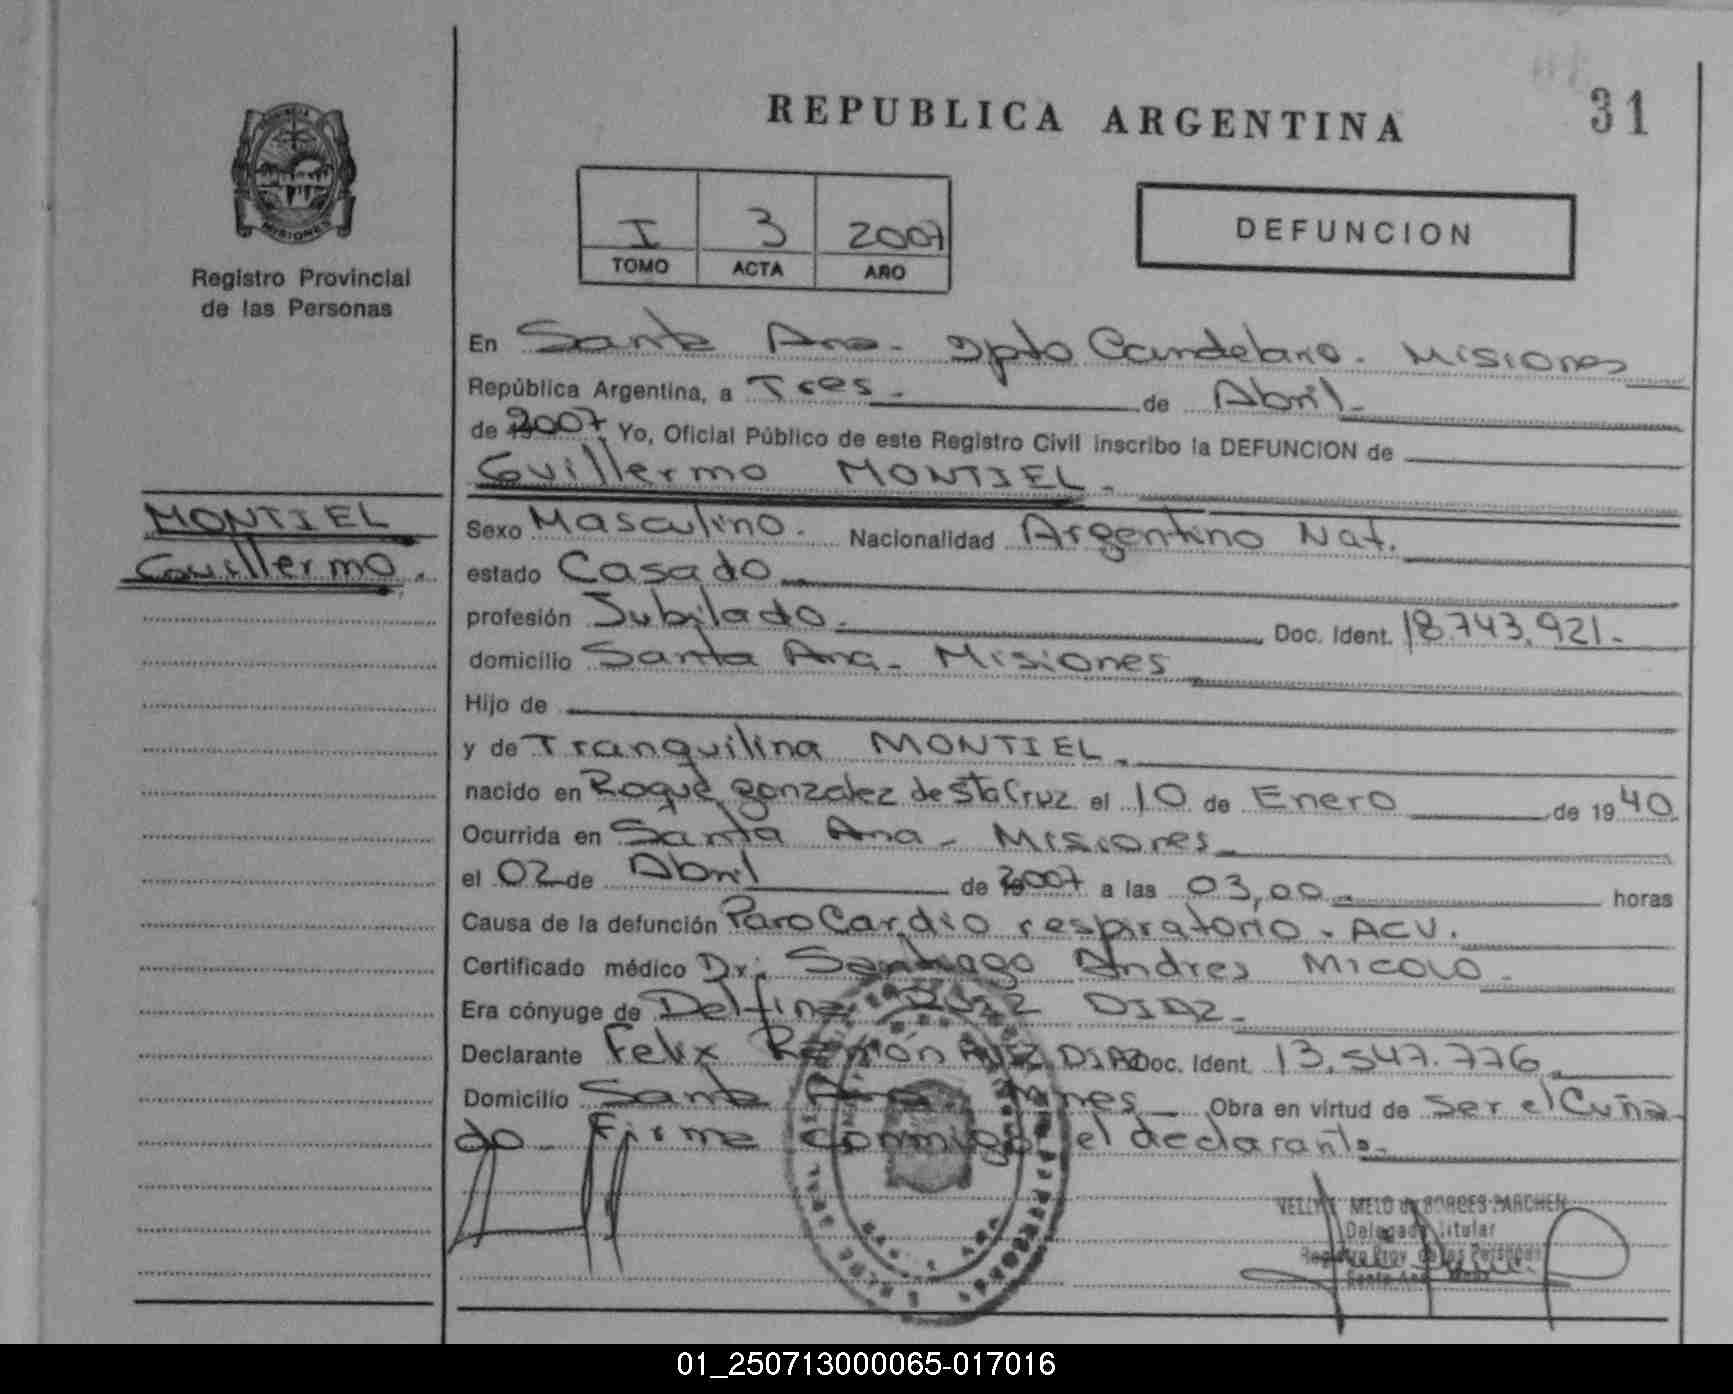 31
REPUBLICA ARGENTINA
I 3 2007
TOMO ACTA AÑO
DEFUNCION
MISIONES
Registro Provincial
de las Personas
En Santa Ana - Dpto Candelaria. Misiones
República Argentina, a Tres - de Abril -
de 2007 Yo, Oficial Público de este Registro Civil inscribo la DEFUNCION de
Guillermo MONTIEL -
MONTIEL
Guillermo.
Sexo Masculino. Nacionalidad Argentino Nat.
estado Casado
profesión Jubilado. Doc. Ident. 18.743.921.-
domicilio Santa Ana - Misiones
Hijo de
y de Tranquilina MONTIEL.
nacido en Roque gonzalez de Sta Cruz el 10 de Enero de 1940
Ocurrida en Santa Ana - Misiones
el 02 de Abril de 2007 a las 03,00 horas
Causa de la defunción Paro Cardio respiratorio - ACV.
Certificado médico Dr: Santiago Andres MICOLO -
Era cónyuge de Delfina DIAZ -
Declarante Felix Ramón RUIZ DIAZ Doc. Ident. 13.547.776
Domicilio Santa Ana Mnes Obra en virtud de Ser el Cuña-
do - Firma conmigo el declarante -
MELO de BORGES PARCHEN
Delegada Titular
Registro Prov. de las Personas
Santa Ana
01_250713000065-017016